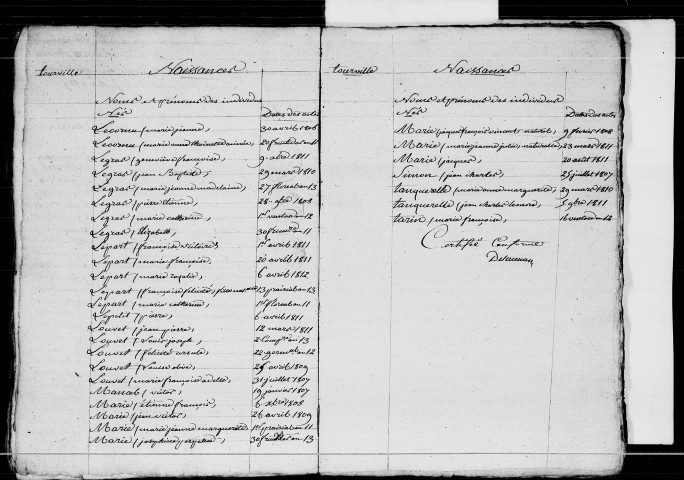 tourville
Naissances
Noms et prénoms des individus
Nés
Dates des actes
Lecornu (marie jeanne, 30 avril 1806
Lecornu (marie anne
Legras (geneviève françoise, 9 abre 1811
Legras (jean Baptiste, 29 mars 1810
Legras (marie jeanne madelaine, 27 floreal an 13
Legras (pierre étienne, 28 9bre 1808
Legras (marie catherine, 1er ventose an 12
Legras (Elizabeth,
Lepart (françoise victoire, 1er avril 1811
Lepart (françois, 20 avril 1811
Lepart (marie rosalie, 6 avril 1812
Lepart (françoise félicité, 13 prairial an 13
Lepart (marie catherine, 1er floreal an 11
Lepetit (pierre, 6 avril 1811
Louvet (jean pierre, 12 mars 1811
Louvet (Louis joseph, 2 an 13
Louvet (félicité ursule, 22 germinal an 12
Louvet (Louise olive, 25 avril 1809
Louvet (marie françoise adelle, 31 juillet 1807
Manab (victor, 19 janvier 1807
Marie (étienne françois, 6 xbre 1808
Marie (jean victor, 26 avril 1809
Marie (marie jeanne marguerite, 1er prairial an 11
Marie (josephine, 30 an 13
tourville
Naissances
Noms et prénoms des individus
Nés
Dates des actes
Marie (jaque françois vincent naturel, 9 fevrier 1808
Marie (marie jeanne julie) naturelle, 23 mars 1811
Marie (jacques, 20 août 1811
Simon (jean charles, 25 juillet 1807
tanquerelle (marie anne marguerite, 29 mars 1810
tanquerelle (jean charles leonord, 5 9bre 1811
tarin (marie françoise, 16 ventose an 12
Certifié Conforme